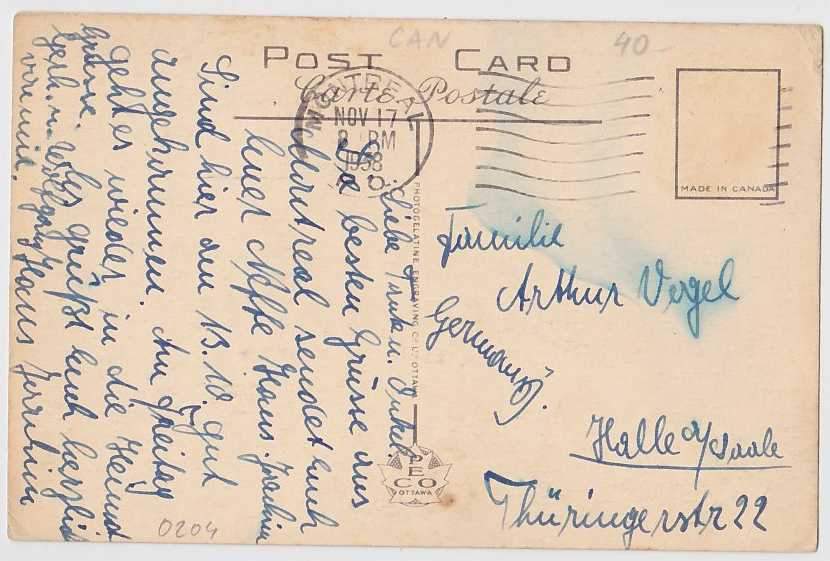 CAN
40-
POST CARD
Carte Postale
MONTREAL
NOV 17
8 PM
1938
P.Q.
MADE IN CANADA
PHOTOGELATINE ENGRAVING CO. LTD. OTTAWA
PECO
OTTAWA
Liebe Tante u. Onkel.
Die besten Grüsse aus
Montreal sendet euch
euer Neffe Hans-Joachim
Sind hier am 13.10. gut
angekommen. Am Freitag
geht es wieder in die Heimat
Es grüßt euch herzlich
Hans Joachim
Familie
Arthur Vogel
Germany.
Halle a/Saale
Thüringerstr 22
0204